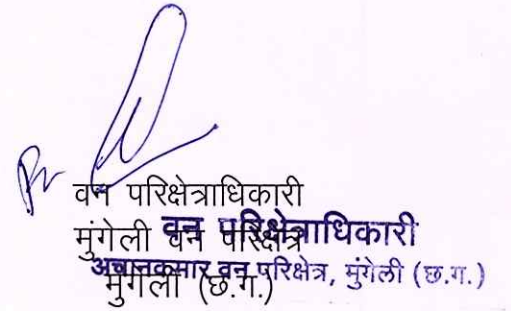 वन परिक्षेत्राधिकारी
मुंगेली वन परिक्षेत्र
मुंगेली (छ.ग.)
वन परिक्षेत्राधिकारी
अचानकमार वन परिक्षेत्र, मुंगेली (छ.ग.)